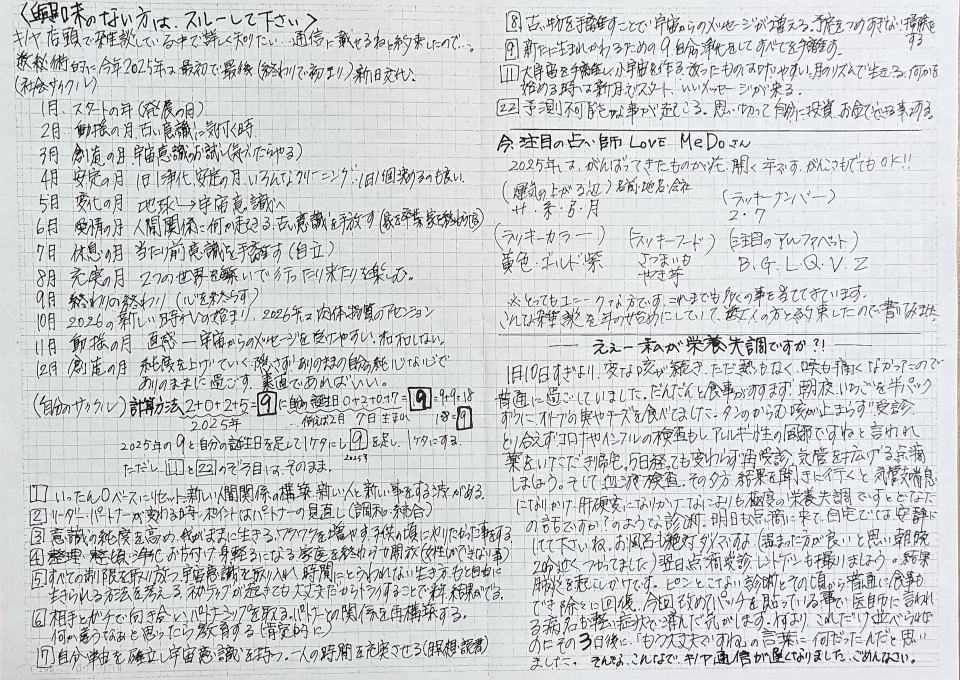 〈興味のない方は、スルーして下さい〉
キノヤ店頭で雑談している中で詳しく知りたい…通信に載せるねと約束したので…。
数秘術的に今年2025年は最初で最後(終わりで初まり)新旧交代。
(社会サイクル)
1月 スタートの年(発展の月)
2月 動揺の月 古い意識に気付く時
3月 創造の月 宇宙意識のお試し(考えたらやる)
4月 安定の月 1日1浄化、安定の月、いろんなクリーニング、1日1個決めるのも良い。
5月 変化の月 地球→宇宙意識へ
6月 愛情の月 人間関係に何か起きる、古い意識を手放す
7月 休息の月 当たり前意識を手放す(自立)
8月 充実の月 2つの世界を繋いで行ったり来たりを楽しむ。
9月 終わりの終わり(心を終らす)
10月 2026の新しい時代の始まり、2026年は肉体、物質のアセンション
11月 動揺の月 直感—宇宙からのメッセージを受けやすい、否定しない。
12月 創造の月 純度を上げていく、隠さず、ありのままの自分、純心な心で
ありのままに過ごす、素直であればいい。
(自分のサイクル) 計算方法 2+0+2+5=9に自分の誕生日0+2+0+7=9=9+9=18
2025年 …例えば2月7日生まれ 1+8=9
2025年の9と自分の誕生日を足して1ケタにし9を足し、1ケタにする。
2025年
ただし、11と22のぞう目は、そのまま。
1 いったん0ベースにリセット、新しい人間関係の構築、新しい人と新しい事をする波がある。
2 リーダー、パートナーが変わる年、ポイントはパートナーの見直し(調和・統合)
3 意識の純度を高め、我がままに生きる、ワクワクを増やす、子供の頃にやりたかった事をする
4 整理・整頓・浄化、お片付け、身軽るになる、家庭を終わらせ開放(女性がでしゃばらない事)
5 すべての制限を取り放つ、宇宙意識を取り入れ、時間にとらわれない生き方、もと自由に
生きられる方法を考える、トラップが起きても大丈夫だからトライすることで、結果がでる。
6 相手とガチで向き合い、パートナシップを取る。パートナーとの関係を再構築する。
何か違うなぁと思ったら教育する(肯定的に)
7 自分軸を確立し宇宙意識を持つ。一人の時間を充実させる(瞑想・読書)
8 古い物を手放すことで宇宙からのメッセージが増える、予定をつめすぎない、掃除をする
9 新たに生まれかわるための9、自分浄化をしてすべてを手放す。
11 大宇宙を手放し、小宇宙を作る、放ったものは叶いやすい、月のリズムで生きる、何かを
始める時は新月でスタート、いいメッセージが来る。
22 予測不可能な事が起こる。思い切って自分に投資、お金で出来る事をする
今、注目の占い師 LOVE MeDoさん
2025年は、がんばってきたものが花開く年です。がんこものでもOK!!
(運気の上がる辺) 名前・地名・会社
廿・糸・弓・月
(ラッキーナンバー)
2・7
(ラッキーカラー)
黄色・ゴールド・紫
(ラッキーフード)
さつまいも
やき芋
(注目のアルファベット)
B・G・L・Q・V・Z
※とってもユニークな方です、これまでも多くの事を当ててきています。
こんな雑談を年の始めにしていて、数人の方と約束したので書いてみました。
えぇー私が栄養失調ですか?!
1月10日すぎより、変な咳が続き、ただ熱もなく、喉も痛くなかったので
普通に過ごしていました。だんだんと食事がすすまず、朝夜、いちごを半パック
ずつに、オリーブの実やチーズを食べてました。タンのからむ咳が止まらず受診、
とり合えずコロナやインフルの検査もし、アレルギー性の風邪ですねと言われ
薬をいただき帰宅。5日経っても変わらず再受診、気管を広げる点滴
しましょう。そして血液検査、その夕方、結果を聞きに行くと気管支喘息
になりかけ、肝硬変になりかけ、なによりも極度の栄養失調ですと、どなた
の話ですか?のような診断。明日も点滴に来て、自宅では安静に
して下さいね、お風呂も絶対ダメですよ(温まった方が良いと思い朝晩
20分近くつかってました) 翌日点滴受診、レントゲンも撮りましょう。結果
肺炎を起こしかけです。ピンとこない診断。その頃から普通に食事も
でき除々に回復。今回改めてパッチを貼っている事で医師に言われ
る病名も軽い症状で済んだ気がします。何より、これだけ並べられた
のにその3日後に「もう大丈夫ですね」の言葉に何だったんだと思い
ました。そんな、こんなで、キノヤ通信が遅くなりました。ごめんなさい。